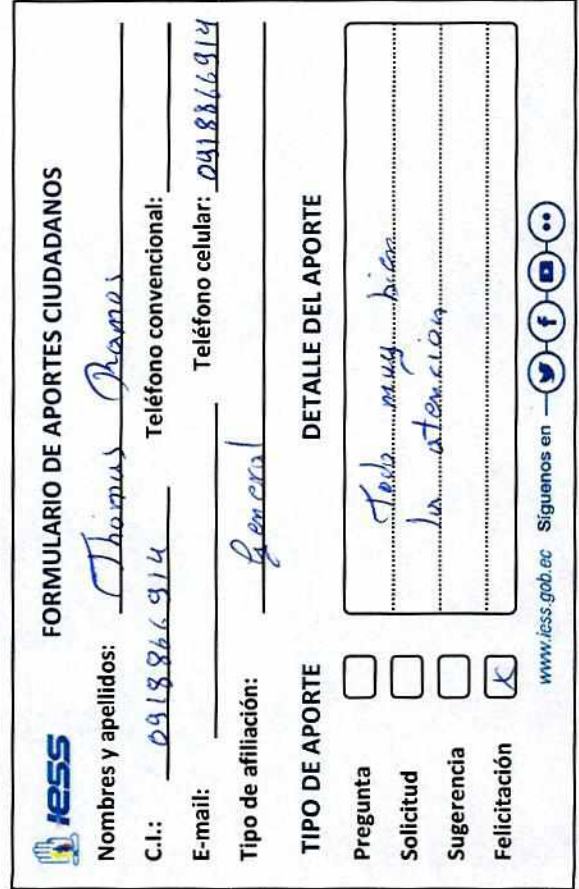 iess
FORMULARIO DE APORTES CIUDADANOS
Nombres y apellidos: Thomas Ramos
C.I.: 0918866914 Teléfono convencional:
E-mail: Teléfono celular: 0918866914
Tipo de afiliación: General
TIPO DE APORTE
Pregunta
Solicitud
Sugerencia
Felicitación X
DETALLE DEL APORTE
Todo muy bien
la atencion
www.iess.gob.ec Síguenos en